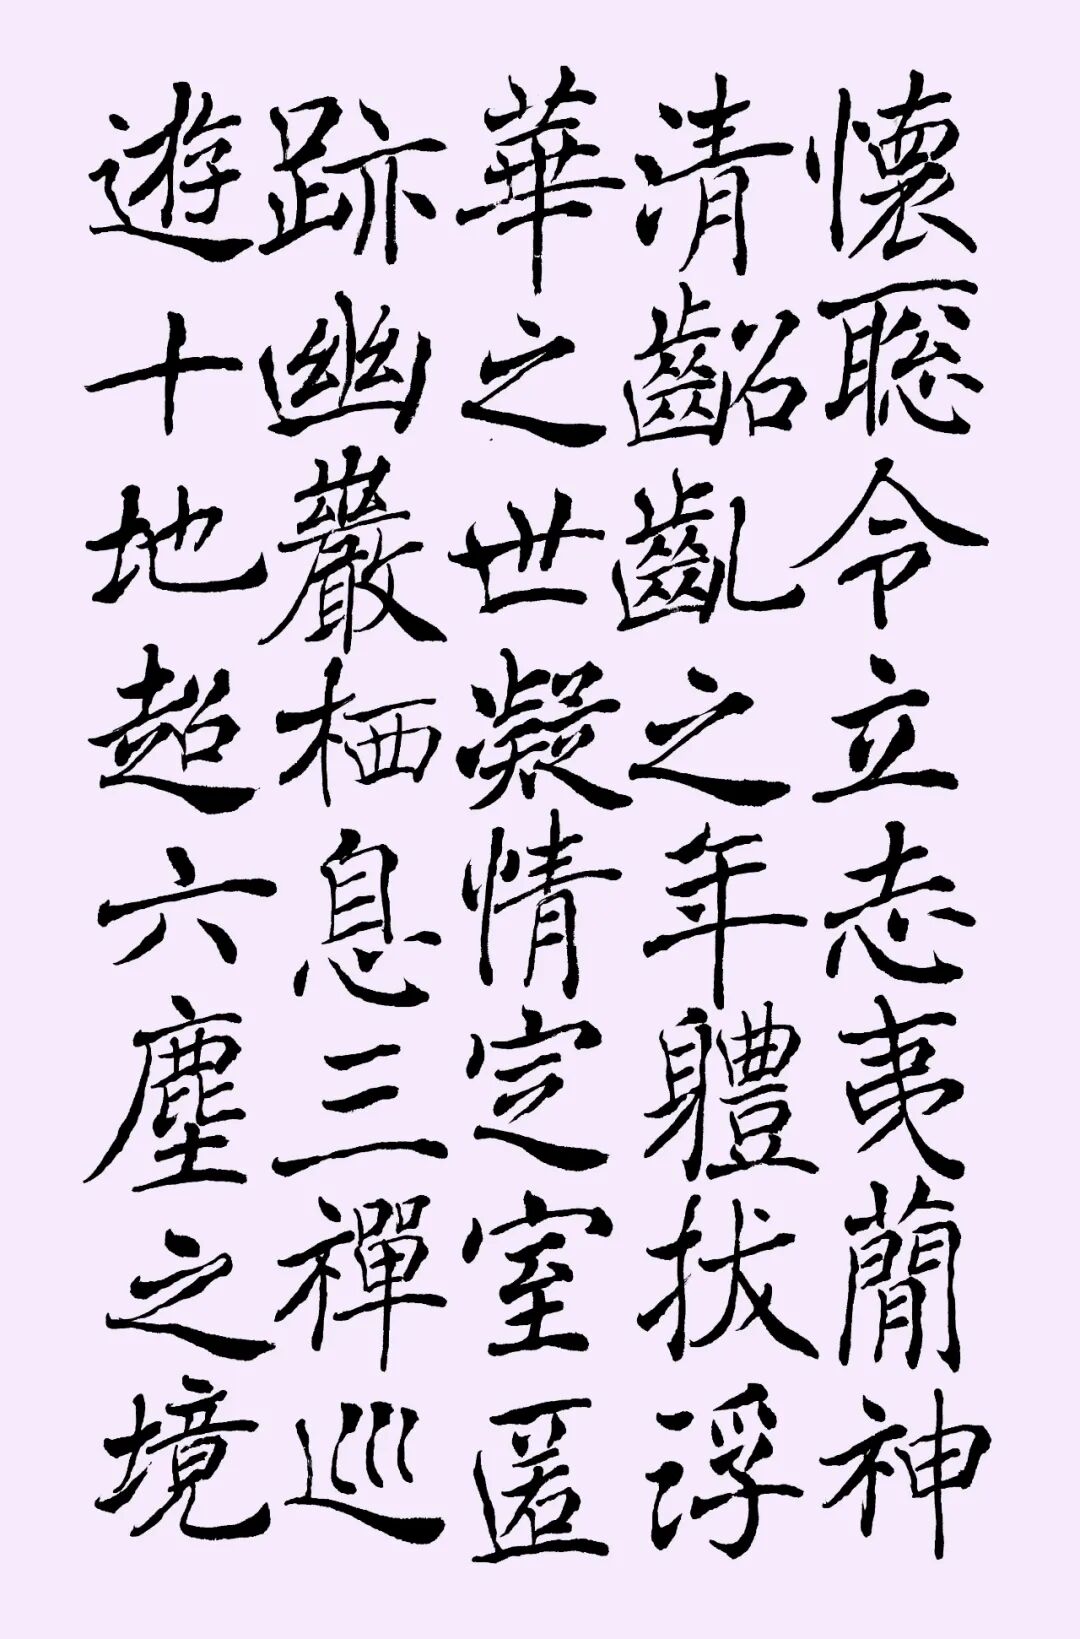 懷聰令立志夷簡神
清齠齔之年體拔浮
華之世凝情定室匿
跡幽巖栖息三禪巡
遊十地超六塵之境